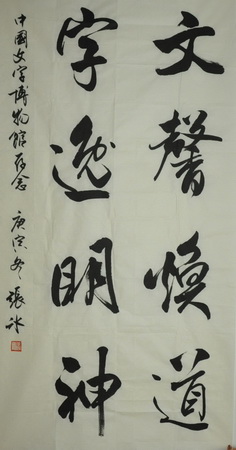 文馨焕道
字逸明神
中國文字博物馆存念 庚寅冬 張冰